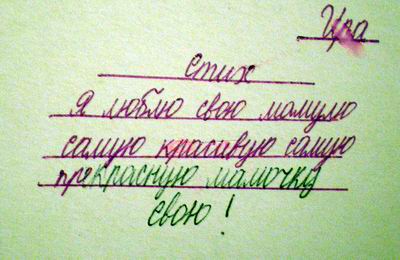 Ира
Стих
Я люблю свою мамулю
самую красивую самую
прекрасную мамочку
свою!